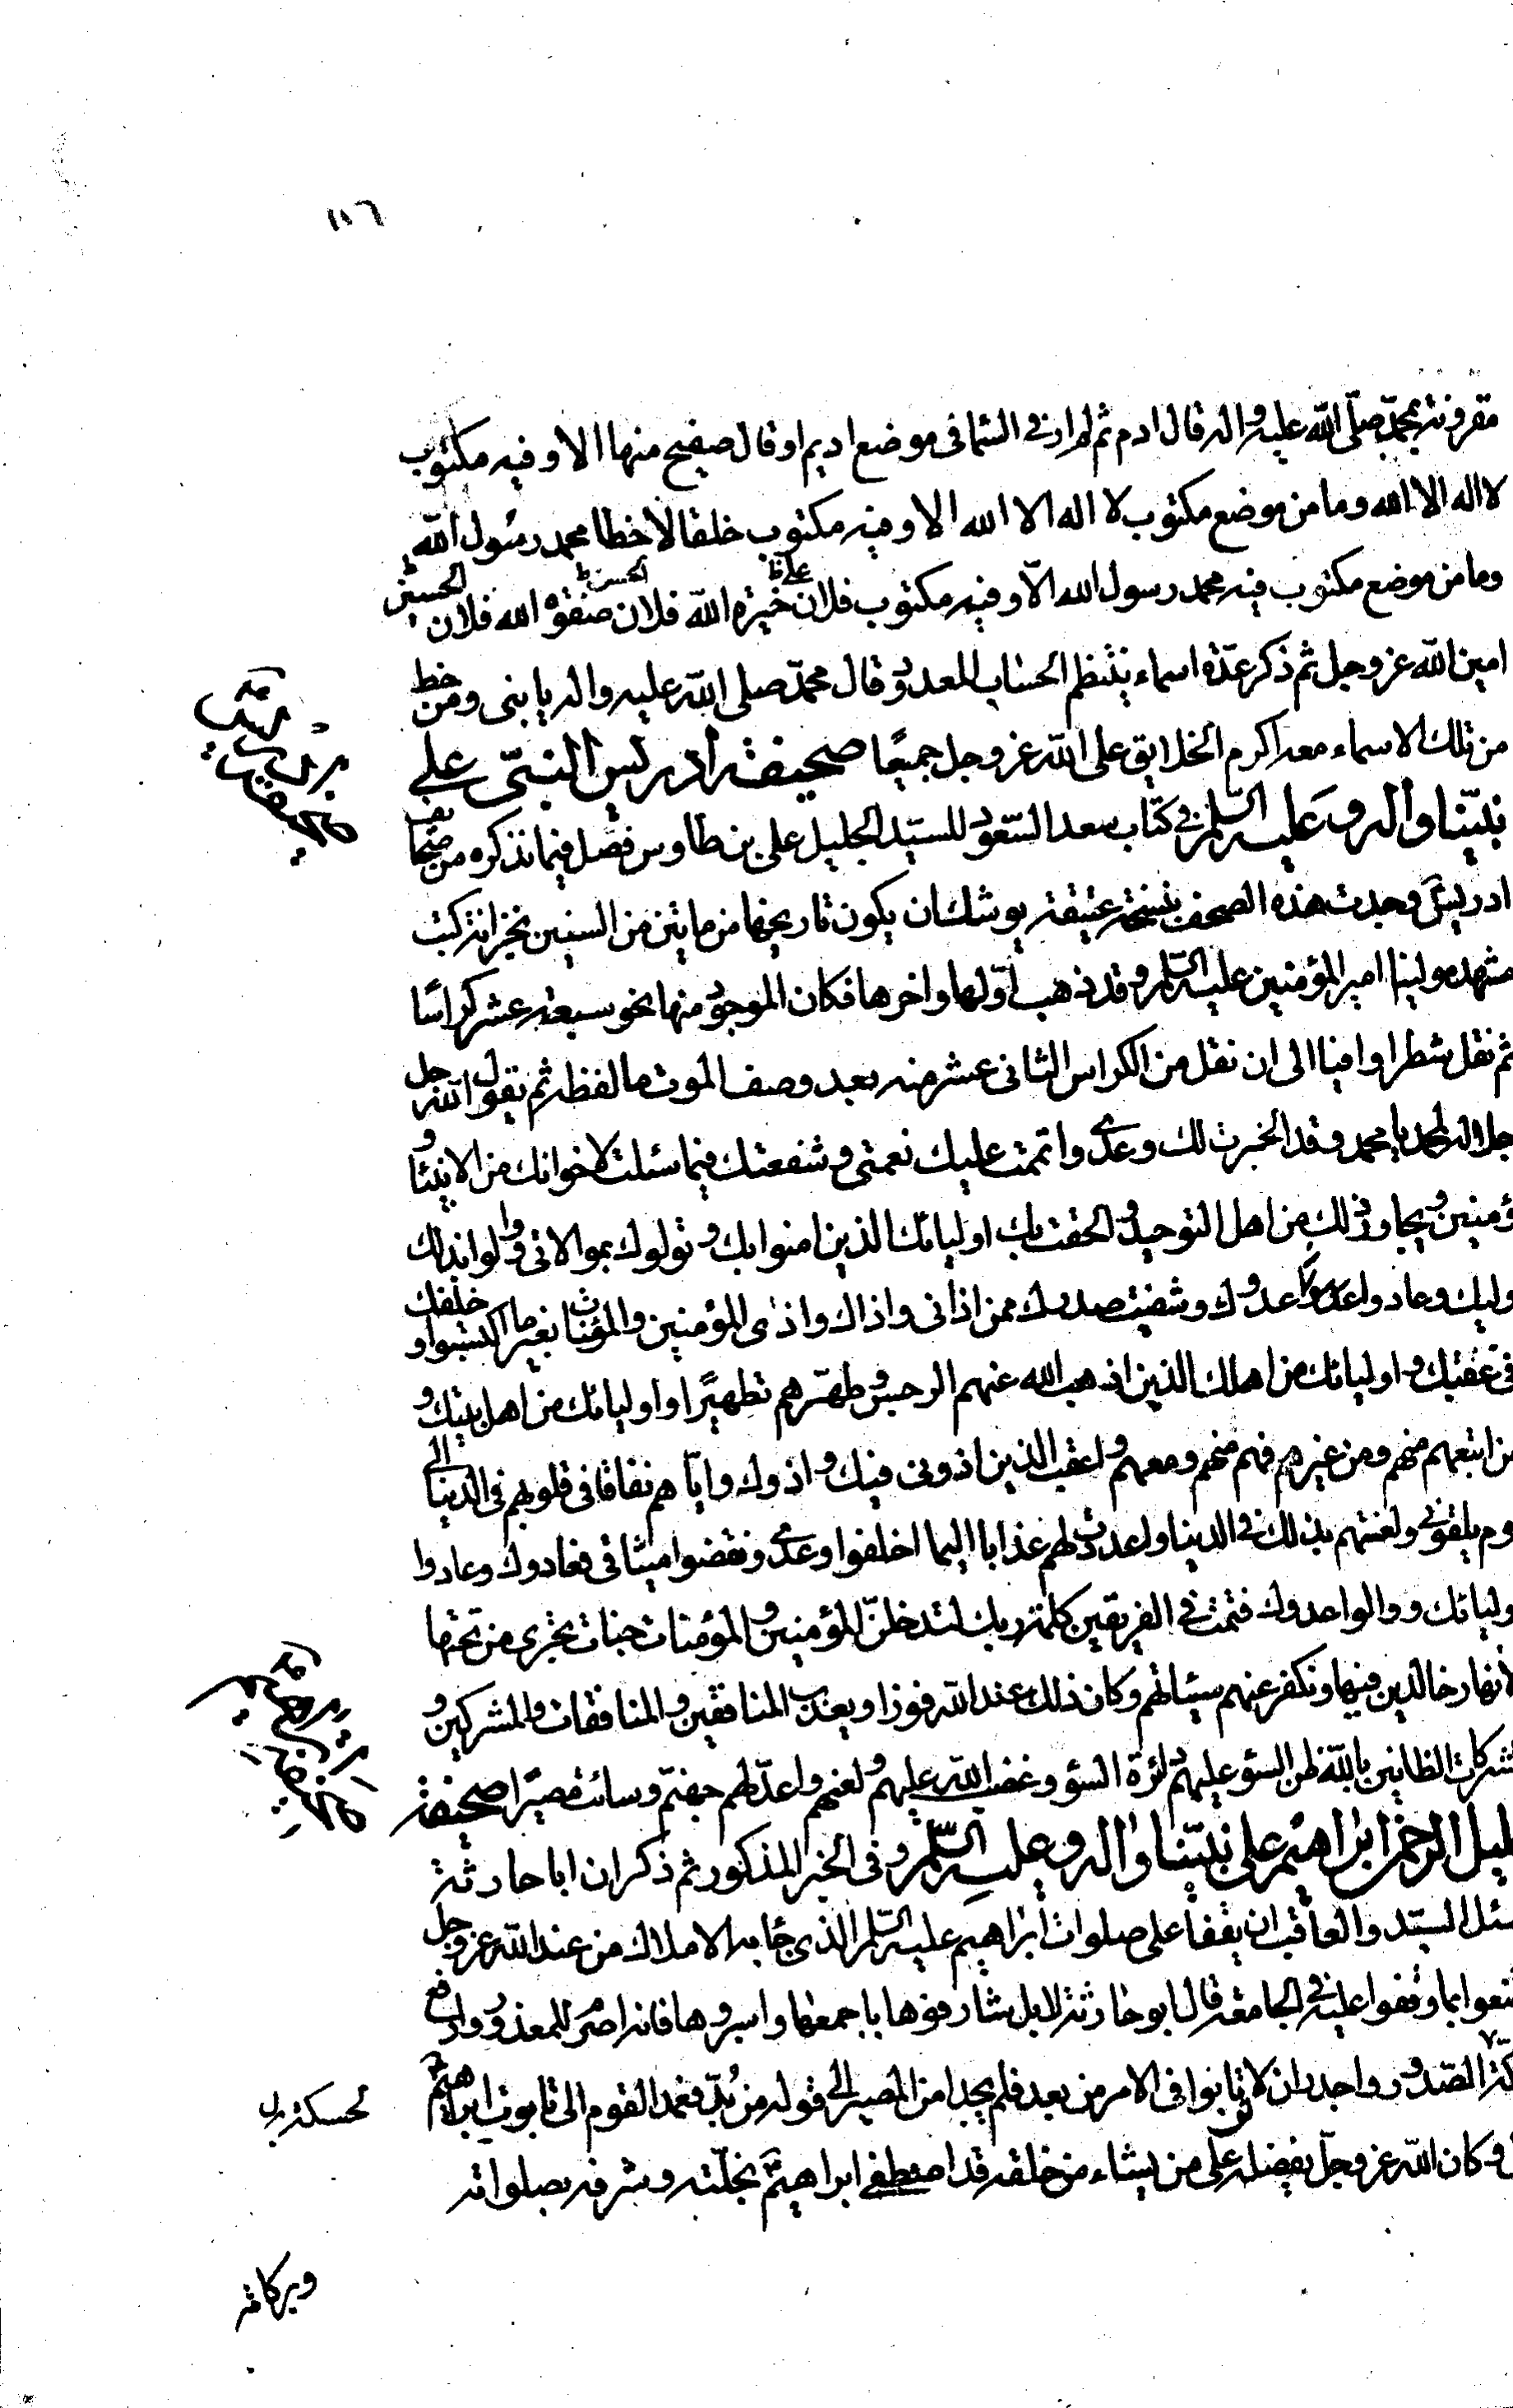 ١٨٦
مقرونة بمحمد صلى الله عليه واله قال ادم ثم لم ار في السما في موضع اديم او قال صفيح منها الا وفيه مكتوب
لا اله الا الله وما من موضع مكتوب لا اله الا الله الا وفيه مكتوب خلقا لا خطا محمد رسول الله
وما من موضع مكتوب فيه محمد رسول الله الّا وفيه مكتوب فلان علي ظ خيرة الله فلان الحسن ظ صفوة الله فلان الحسين
امين الله عز وجل ثم ذكر عدّة اسماء ينتظم الحساب المعدود قال محمّد صلى الله عليه واله يا بنى ومن خط
من تلك الاسماء معه اكرم الخلايق على الله عز وجل جميعًا صحيفة ادريس النبىّ على
نبيّنا واله وعليه السّلم في كتاب سعد السّعود للسيّد الجليل على بن طاوس فصل فيما نذكره من صحف
ادريس وجدت هذه الصحف بنسخة عتيقة يوشك ان يكون تاريخها من مايتين من السنين بخزانة كتب
مشهد مولينا امير المؤمنين عليه السّلم وقد ذهب اوّلها واخرها فكان الموجود منها نحو سبعة عشر كراسًا
ثم نقل شطرا وافيا الى ان نقل من الكراس الثانى عشر منه بعد وصف الموت ما لفظه ثم تقول الله جل
جلاله لمحمد يا محمد وقد انجزت لك وعدى واتممت عليك نعمتى وشفعتك فيما سئلت لاخوانك من الانبيا و
ؤمنين ويجاوز ذلك من اهل التوحيد والحقت بك اوليائك الذين امنوا بك وتولوك بموالاتى ووالوا بذلك
وليك وعادوا عدوك وشفيت صدرك ممن اذانى واذاك واذى المؤمنين والمؤمنات بغير ما اكتسبوا و خلفك
فى عقبك واوليائك من اهلك الذين اذهب الله عنهم الرجس وطهّرهم تطهيرًا واوليائك من اهل بيتك و
من اتبعهم منهم ومن غيرهم فهم منهم ومعهم واعقب الذين اذونى فيك واذوك وايّاهم نفاقا فى قلوبهم فى الدنيا الى
وم يلقونى ولعنتهم بذلك فى الدينا واعددت لهم عذابا اليما اخلفوا وعدى ونقضوا ميثاقى فعادوك وعادوا
وليائك ووالوا عدوك فتمت فى الفريقين كلمة ربك لتدخلنّ المؤمنين والمؤمنات جنات تجرى من تحتها
لانهار خالدين فيها ونكفر عنهم سيئاتهم وكان ذلك عند الله فوزا ويعذب المنافقين والمنافقات والمشركين و
شركات الظانين بالله ظن السؤ عليهم دائرة السؤ وغضب الله عليهم ولعنهم واعدّ لهم جهنّم وسائت مصيرًا صحيفة
ليل الرحمن ابراهيم على نبيّنا واله وعليه السّلم وفى الخبر المذكور ثم ذكر ان ابا حارثة
سئل السيّد والعاقب ان يقفا على صلوات ابراهيم عليه السّلم الذى جا به الاملاك من عند الله عز وجل
نعوا بما وقفوا عليه فى الجامعة قال ابو حارثة لا بل شارفوها باجمعها واسبروها فانه اصرم للمعذور وارفع
كّة الصّدور واجدر ان لا ترتابوا فى الامر من بعد فلم يجدا من المصير الى قوله من بُدّ فعمد القوم الى تابوت ابراهيم
وكان الله عز وجلّ بفضله على من يشاء من خلقه قد اصطفى ابراهيم بخلّته وشرفه بصلواته
وبركاته